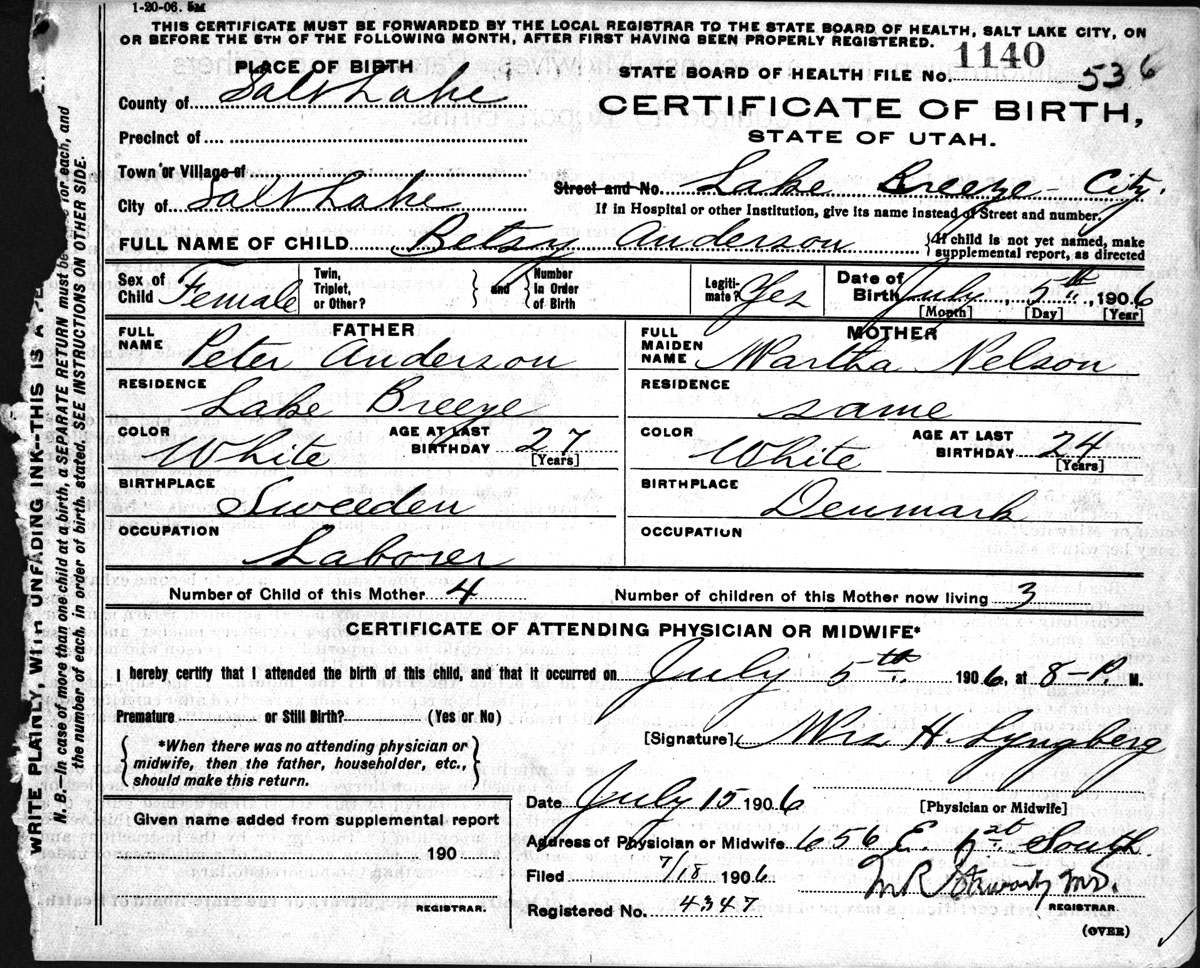 1-20-06. 5M
THIS CERTIFICATE MUST BE FORWARDED BY THE LOCAL REGISTRAR TO THE STATE BOARD OF HEALTH, SALT LAKE CITY, ON
OR BEFORE THE 5TH OF THE FOLLOWING MONTH, AFTER FIRST HAVING BEEN PROPERLY REGISTERED.
PLACE OF BIRTH
STATE BOARD OF HEALTH FILE No. 1140 536
County of Salt Lake
CERTIFICATE OF BIRTH,
Precinct of
STATE OF UTAH.
Town or Village of
Street and No. Lake Breeze - City.
City of Salt Lake
If in Hospital or other Institution, give its name instead of Street and number.
FULL NAME OF CHILD Betsy Anderson
If child is not yet named, make
supplemental report, as directed
Sex of Child Female
Twin, Triplet, or Other?
and
Number In Order of Birth
Legitimate? Yes
Date of Birth July 5th, 1906
[Month] [Day] [Year]
FATHER
FULL NAME Peter Anderson
RESIDENCE
Lake Breeze
COLOR White
AGE AT LAST BIRTHDAY 27
[Years]
BIRTHPLACE
Sweeden
OCCUPATION
Laborer
MOTHER
FULL MAIDEN NAME Martha Nelson
RESIDENCE
same
COLOR White
AGE AT LAST BIRTHDAY 24
[Years]
BIRTHPLACE
Denmark
OCCUPATION
Number of Child of this Mother 4
Number of children of this Mother now living 3
CERTIFICATE OF ATTENDING PHYSICIAN OR MIDWIFE*
I hereby certify that I attended the birth of this child, and that it occurred on July 5th. 1906, at 8- P. M.
Premature or Still Birth? (Yes or No)
*When there was no attending physician or
midwife, then the father, householder, etc.,
should make this return.
[Signature] Mrs H. Lyngberg
Date July 15 1906
[Physician or Midwife]
Given name added from supplemental report
190
REGISTRAR.
Address of Physician or Midwife 656 E. South
Filed 7/18 1906
M.D.
REGISTRAR.
Registered No. 4347
(OVER)
WRITE PLAINLY, WITH UNFADING INK--THIS IS A PE
N. B.--In case of more than one child at a birth, a SEPARATE RETURN must be for each, and
the number of each, in order of birth, stated. SEE INSTRUCTIONS ON OTHER SIDE.